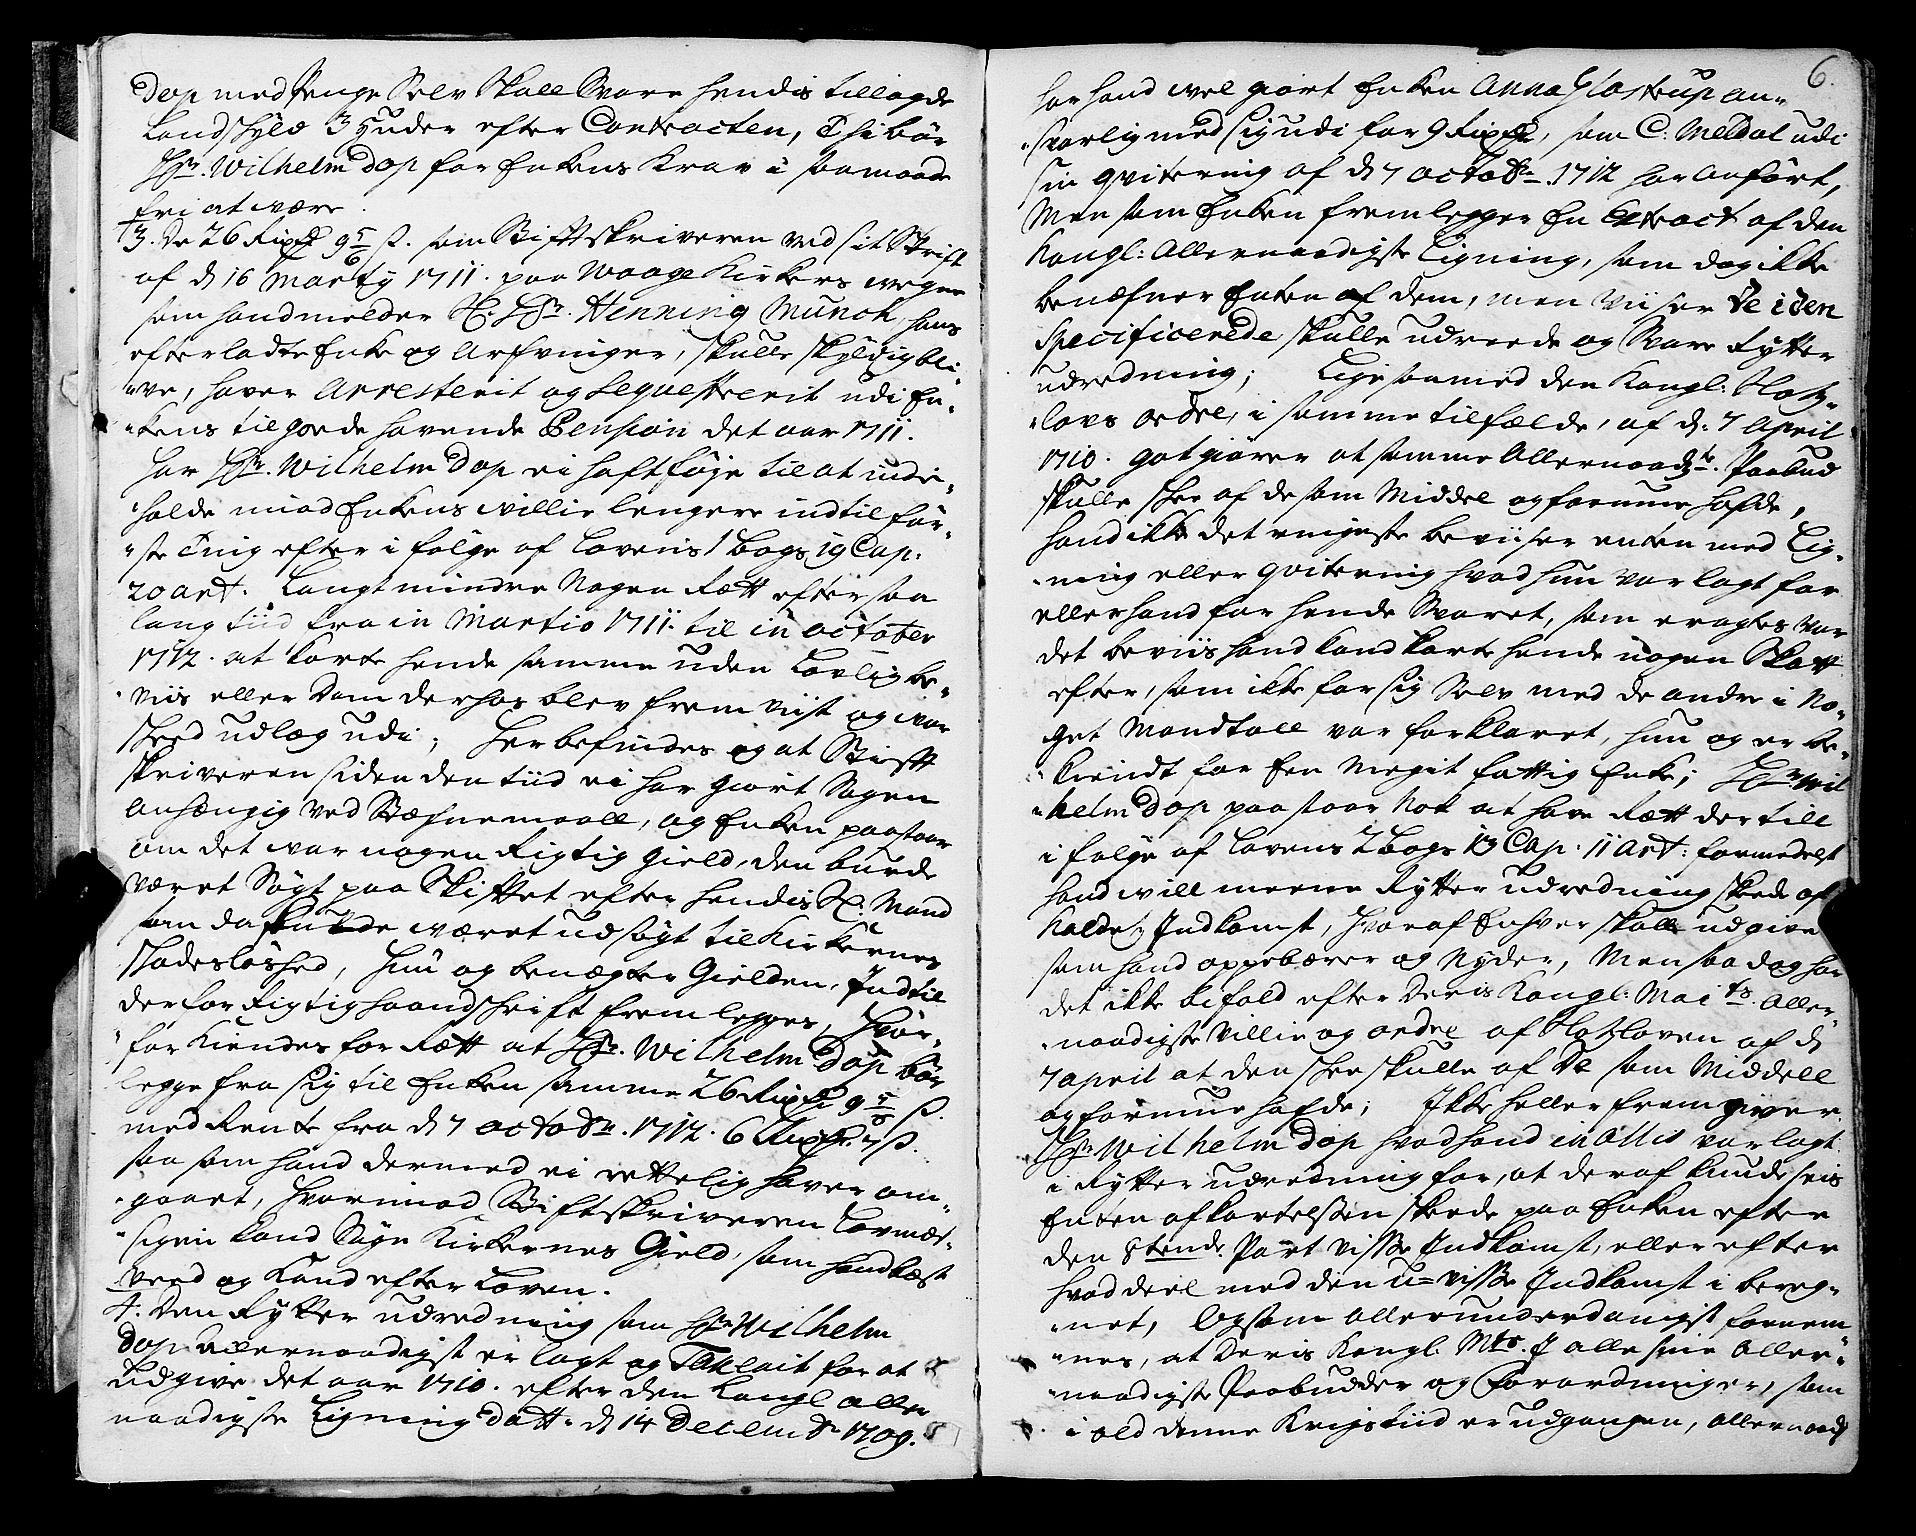 Dop med Penge Selv skall Svare hendis tillagde
Landskyld 3 Huder efter Contracten, Thi bör
Hr. Wilhelm Dop for Enkens Krav i saa maade
fri at være.
3. De 26 Rixdr 9 5/6 s. som Stiftskriveren ved sit Skrift
af d 16 Marty 1711. paa Waage Kirkers wegne
som hand melder Sl. Hr. Henning Munch, hans
efterladte Enke og Arfvinger, skulle skyldig bli-
"ve, haver Arresterit og Seqvestrerit udi En-
"kens tilgode havende Pension det aar 1711.
har Hr. Wilhelm Dop ei haft föje til at inde-
"holde mod Enkens willie lengere indtil för-
"ste Ting efter i fölge af Lovens 1 Bogs 19 Cap.
20 art. Langt mindre Nogen Rætt efter saa
lang tiid fra in Martio 1711. til in october
1712. at korte hende samme uden Lovlig be-
"viis eller Dom derhos blev frem viist og war
skeed udlæg udi; Her befindes og at Stift
skriveren siden den tiid ei har giort Sagen
anhængig ved Stæfnemaall, og Enken paastaar
om det war nogen Rigtig gield, den burde
været Sögt paa Skiftet efter hendis Sl. Mand
som da kunde været udsögt til Kirkernes
skadeslöshed, Hun og benægter Gielden, Indtil
derfor Rigtig haandskrift fremlegges, Hvor-
"for Kiendes for Rætt at Hr. Wilhelm Dop bör
legge fra sig til Enken samme 26 Rixdr 9 5/6 s.
med Rente fra d 7 octobr. 1712. 6 Rixdr. 7 s.
saa som hand dermed ei rettelig haver om-
"gaaet, hvorimod Stiftskriveren Lovmæs-
"sigen kand Söge Kirkernes Gield, som hand bæst
veed og Kand efter Loven.
4. Den Rytter udredning som Hr Wilhelm
Dop Allernaadigst er lagt og Taxlait for at
udgive det aar 1710. efter den Kongl aller
naadigste Ligning datt. d 14 Decembr 1709.
6.
har hand wel giort Enken Anna Glostrup an-
"svarlig med sig udi for 9 Rixdr, som C. Meldal udi
sin qvitering af d 7 octobr. 1712 har anfört,
Men som Enken fremlegger En Extract af den
Kongl: Allernaadigste Ligning, som dog ikke
benæfner Enken af dem, men viiser De i den
Specificerede skulle udreede og Svare Rytter
udredning; Lige saa med den Kongl: Slotz-
"lovs ordre, i samme tilfælde, af d. 7 April
1710. gotgiörer at samme Allernaadste. Paabud
skulle skee af de som Middel og formue hafde,
hand ikke det ringeste beviiser enten med Lig-
"ning eller qvitering hvad hun var lagt for
eller hand for hende Svaret, som eragtes var
det beviis hand kand korte hende nogen Skatt
efter, som ikke for sig Selv med de andre i No-
"get Mandtall var forklaret, hun og er be-
"kiendt for Een Meget fattig Enke; Hr Wil
"helm Dop paastaar Nok at have Rætt der till
i fölge af Lovens 2 Bogs 13 Cap. 11 art: formedelst
hand will meene Rytter udredning skeede af
Kaldetz Indkomst, hvoraf Enhver skall udgive
som hand oppebærer og Nyder, Men saa dog har
det ikke bifald efter Deris Kongl: Maits. aller-
"naadigste Villie og ordre af Slotzloven af d
7 april at den skee skulle af De som Middell
og formue hafde; Ikke heller fremgiver
Hr Wilhelm Dop hvad hand in Allis var lagt
i Rytter udredning for, at deraf kunde sees
Enten afkortelssen skeede paa Enken efter
den 8tende Part visse Indkomst, eller efter
hvad deel med den u=visse Indkomst i bereg-
"net, Ligesom allerunderdanigst fornem
"nes, at Deris Kongl. Mts. I alle sine aller-
"naadigste Paabudder og Forordninger, som
i ald denne Krigs tiid er udgangen, allernaad